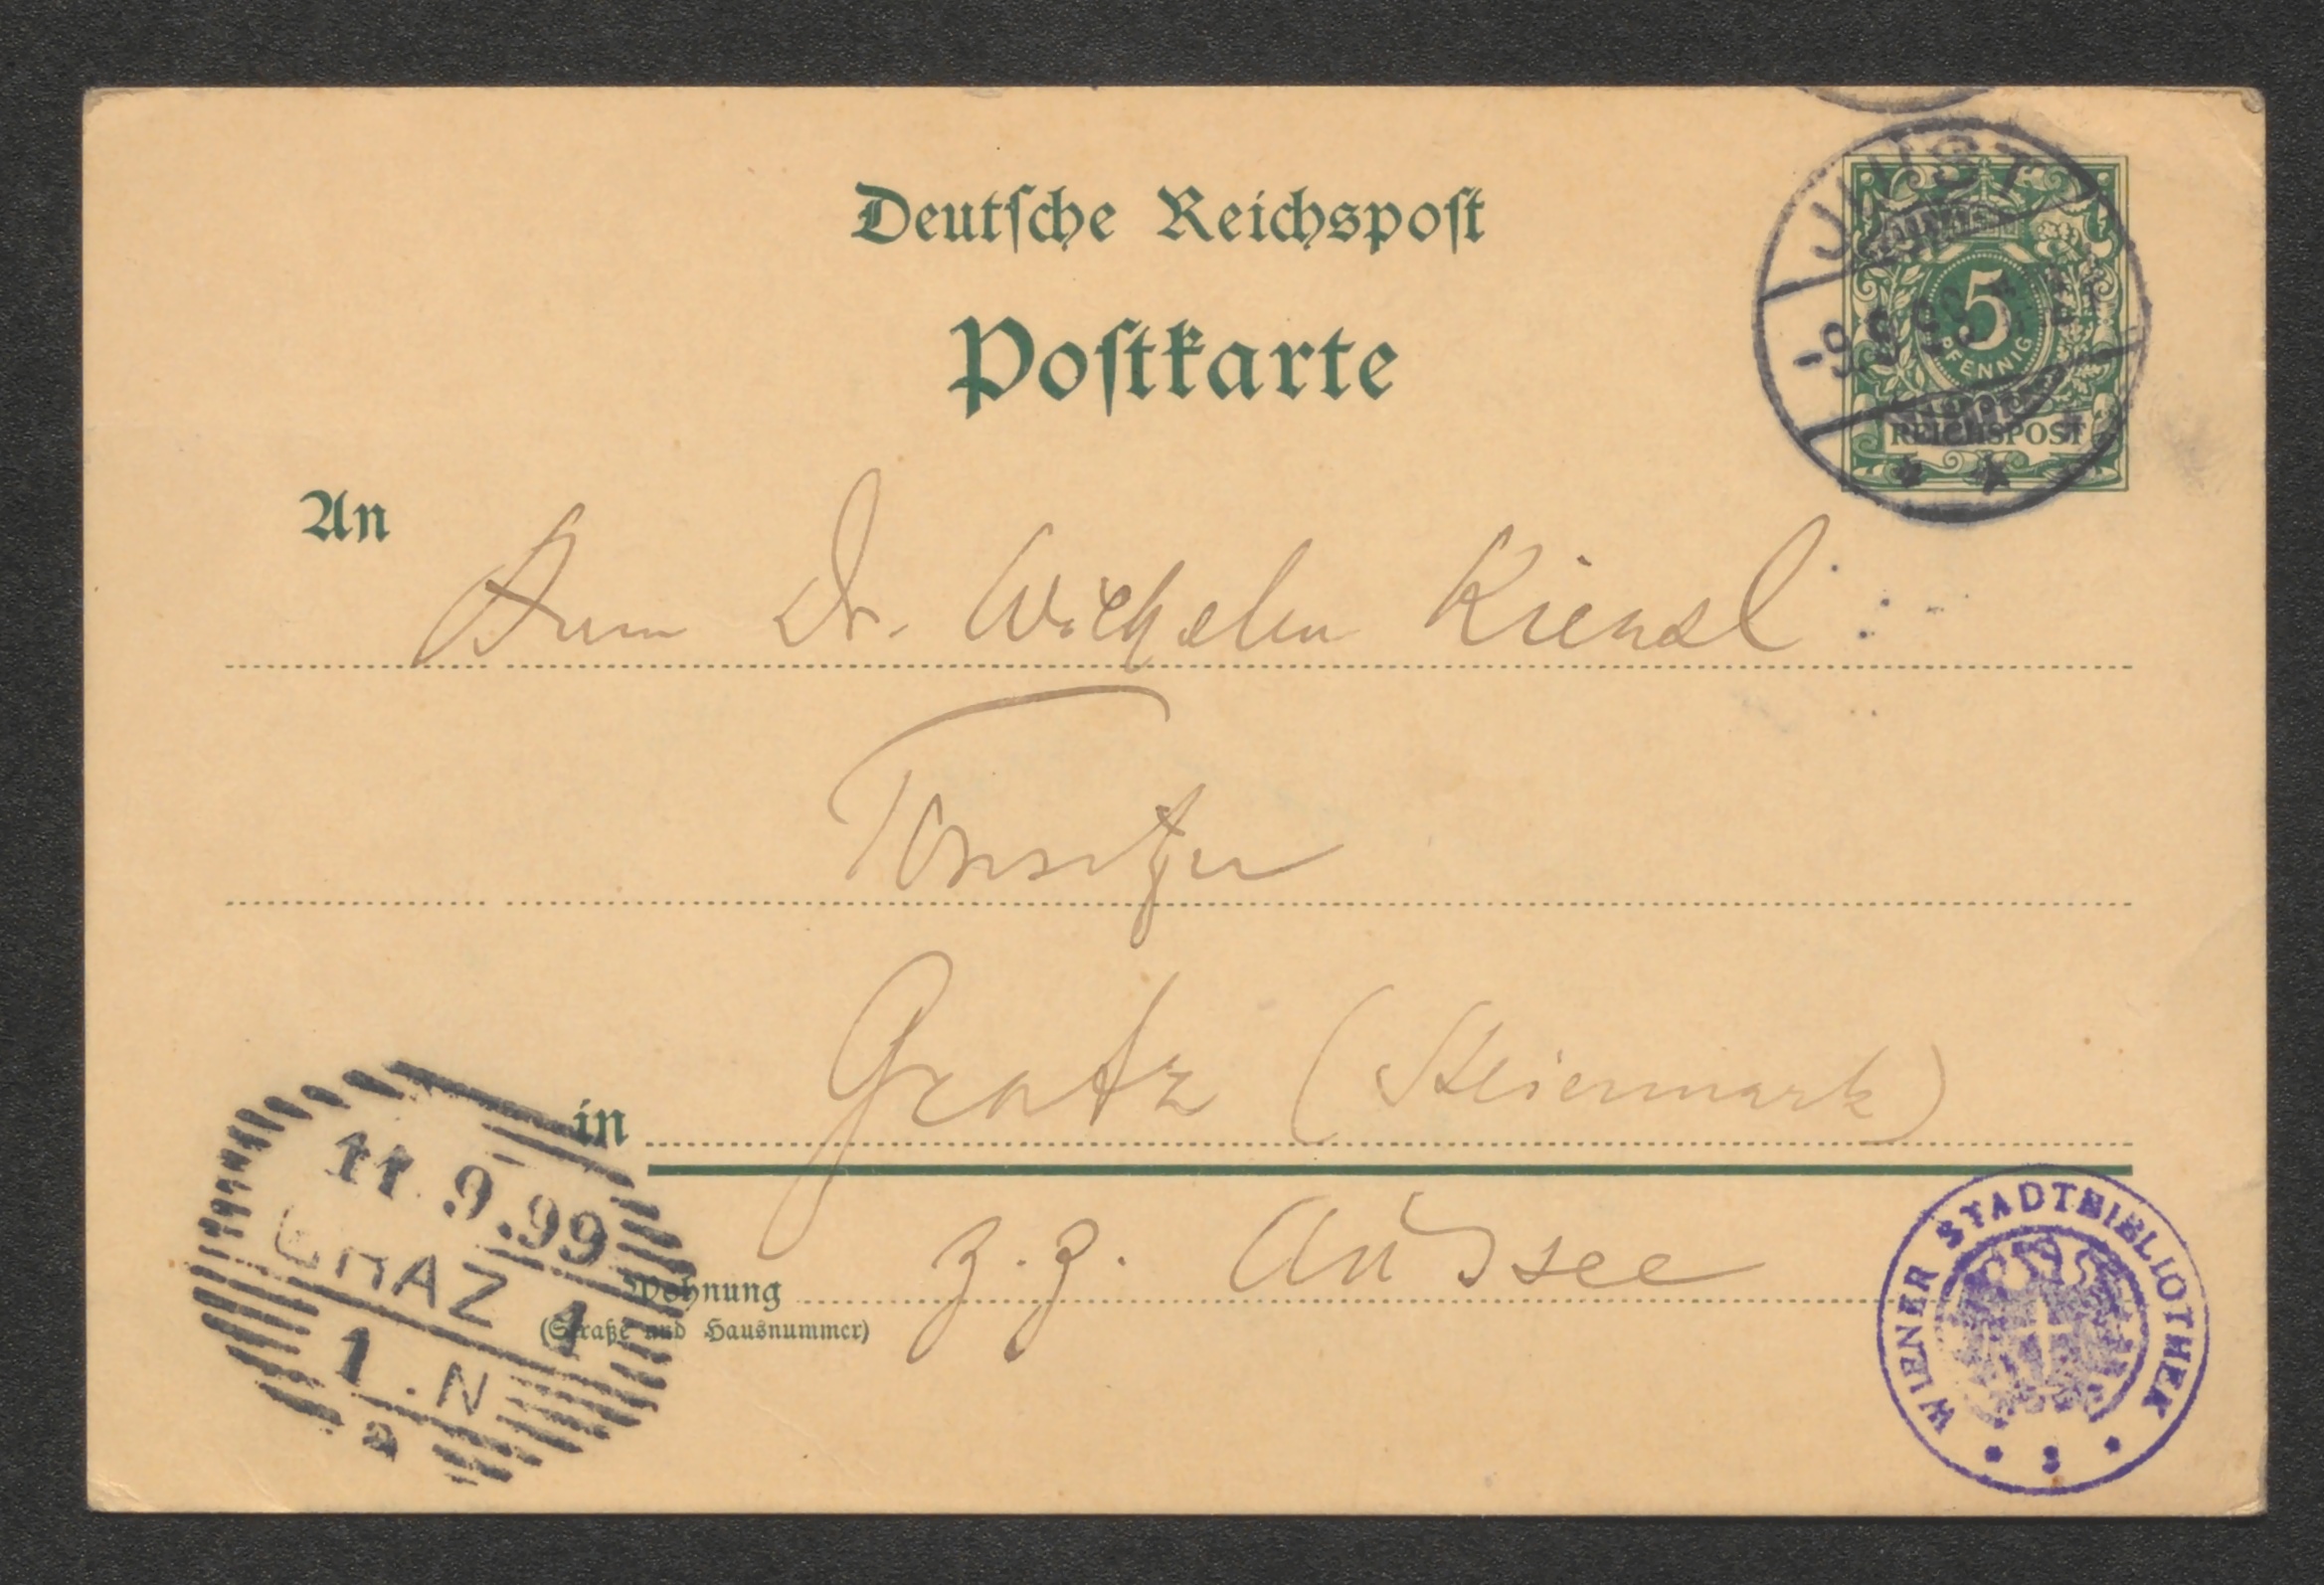 Deutsche Reichspost
Postkarte
JUIST
9 9 99
5
PFENNIG
REICHSPOST
An
Herrn Dr. Wilhelm Kienzl
Tonsetzer
in Gratz (Steiermark)
z. Z. Aussee
Wohnung
(Straße und Hausnummer)
11.9.99
GRAZ 1
1.N
WIENER STADTBIBLIOTHEK